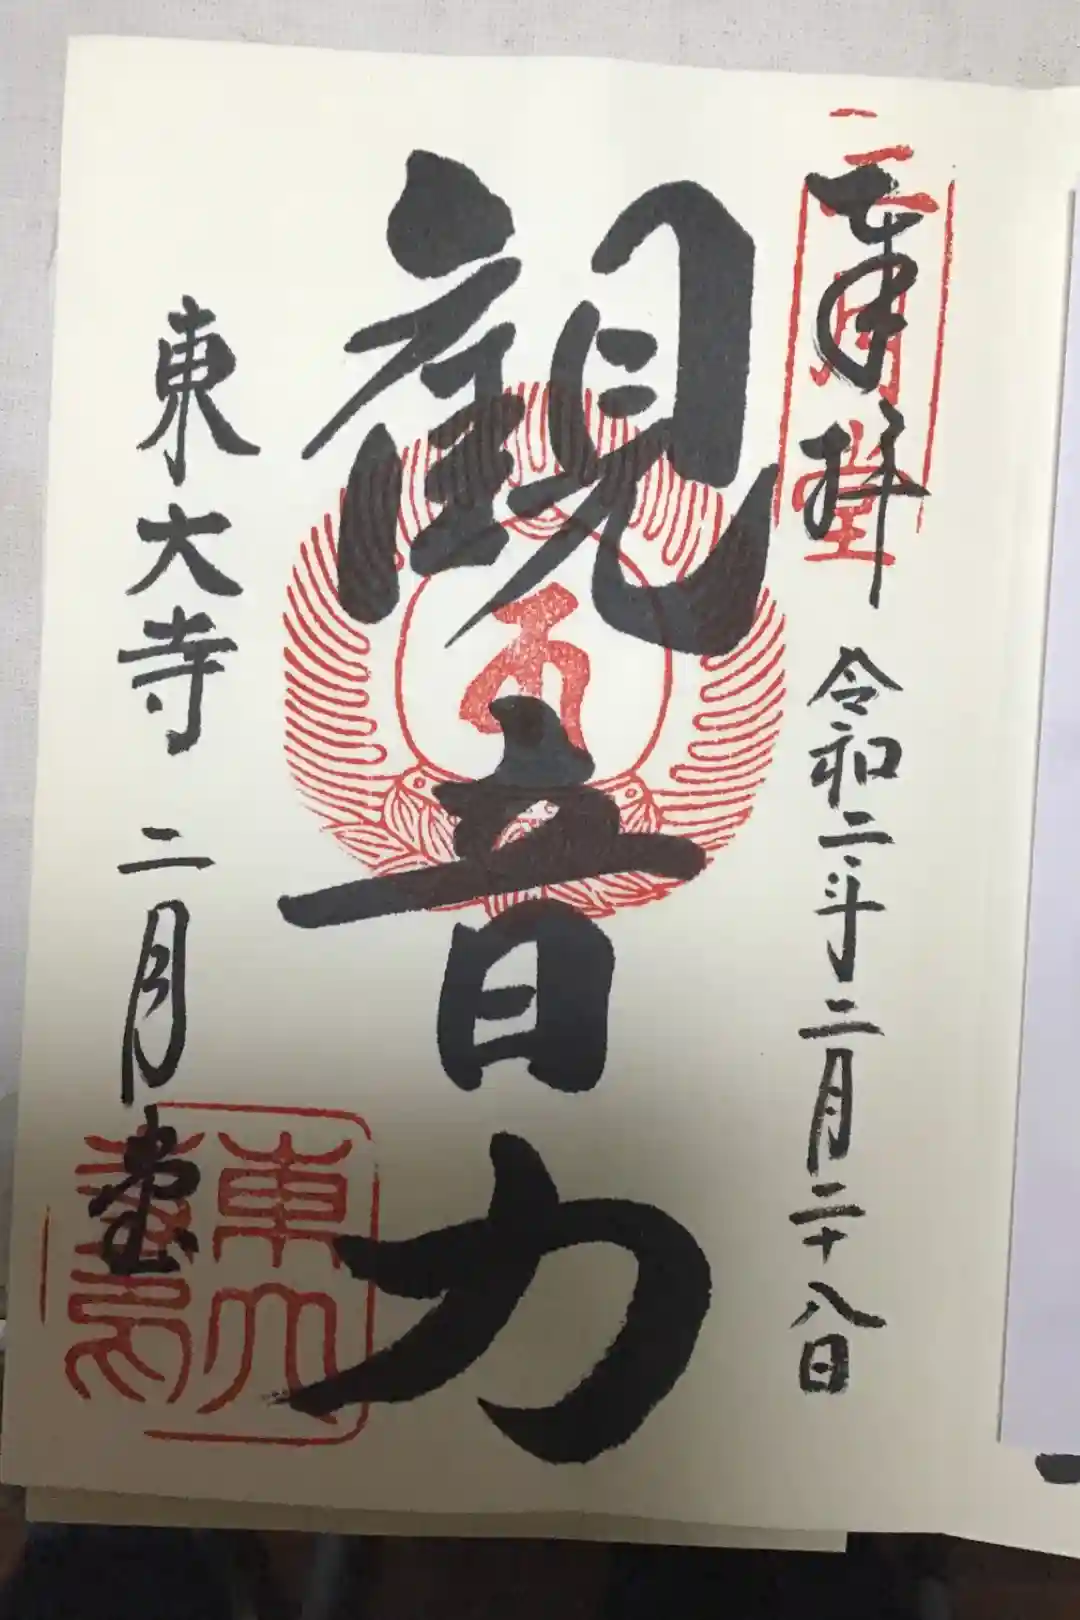 奉拝
二月堂
令和二年二月二十八日
觀音力
東大寺 二月堂
東大